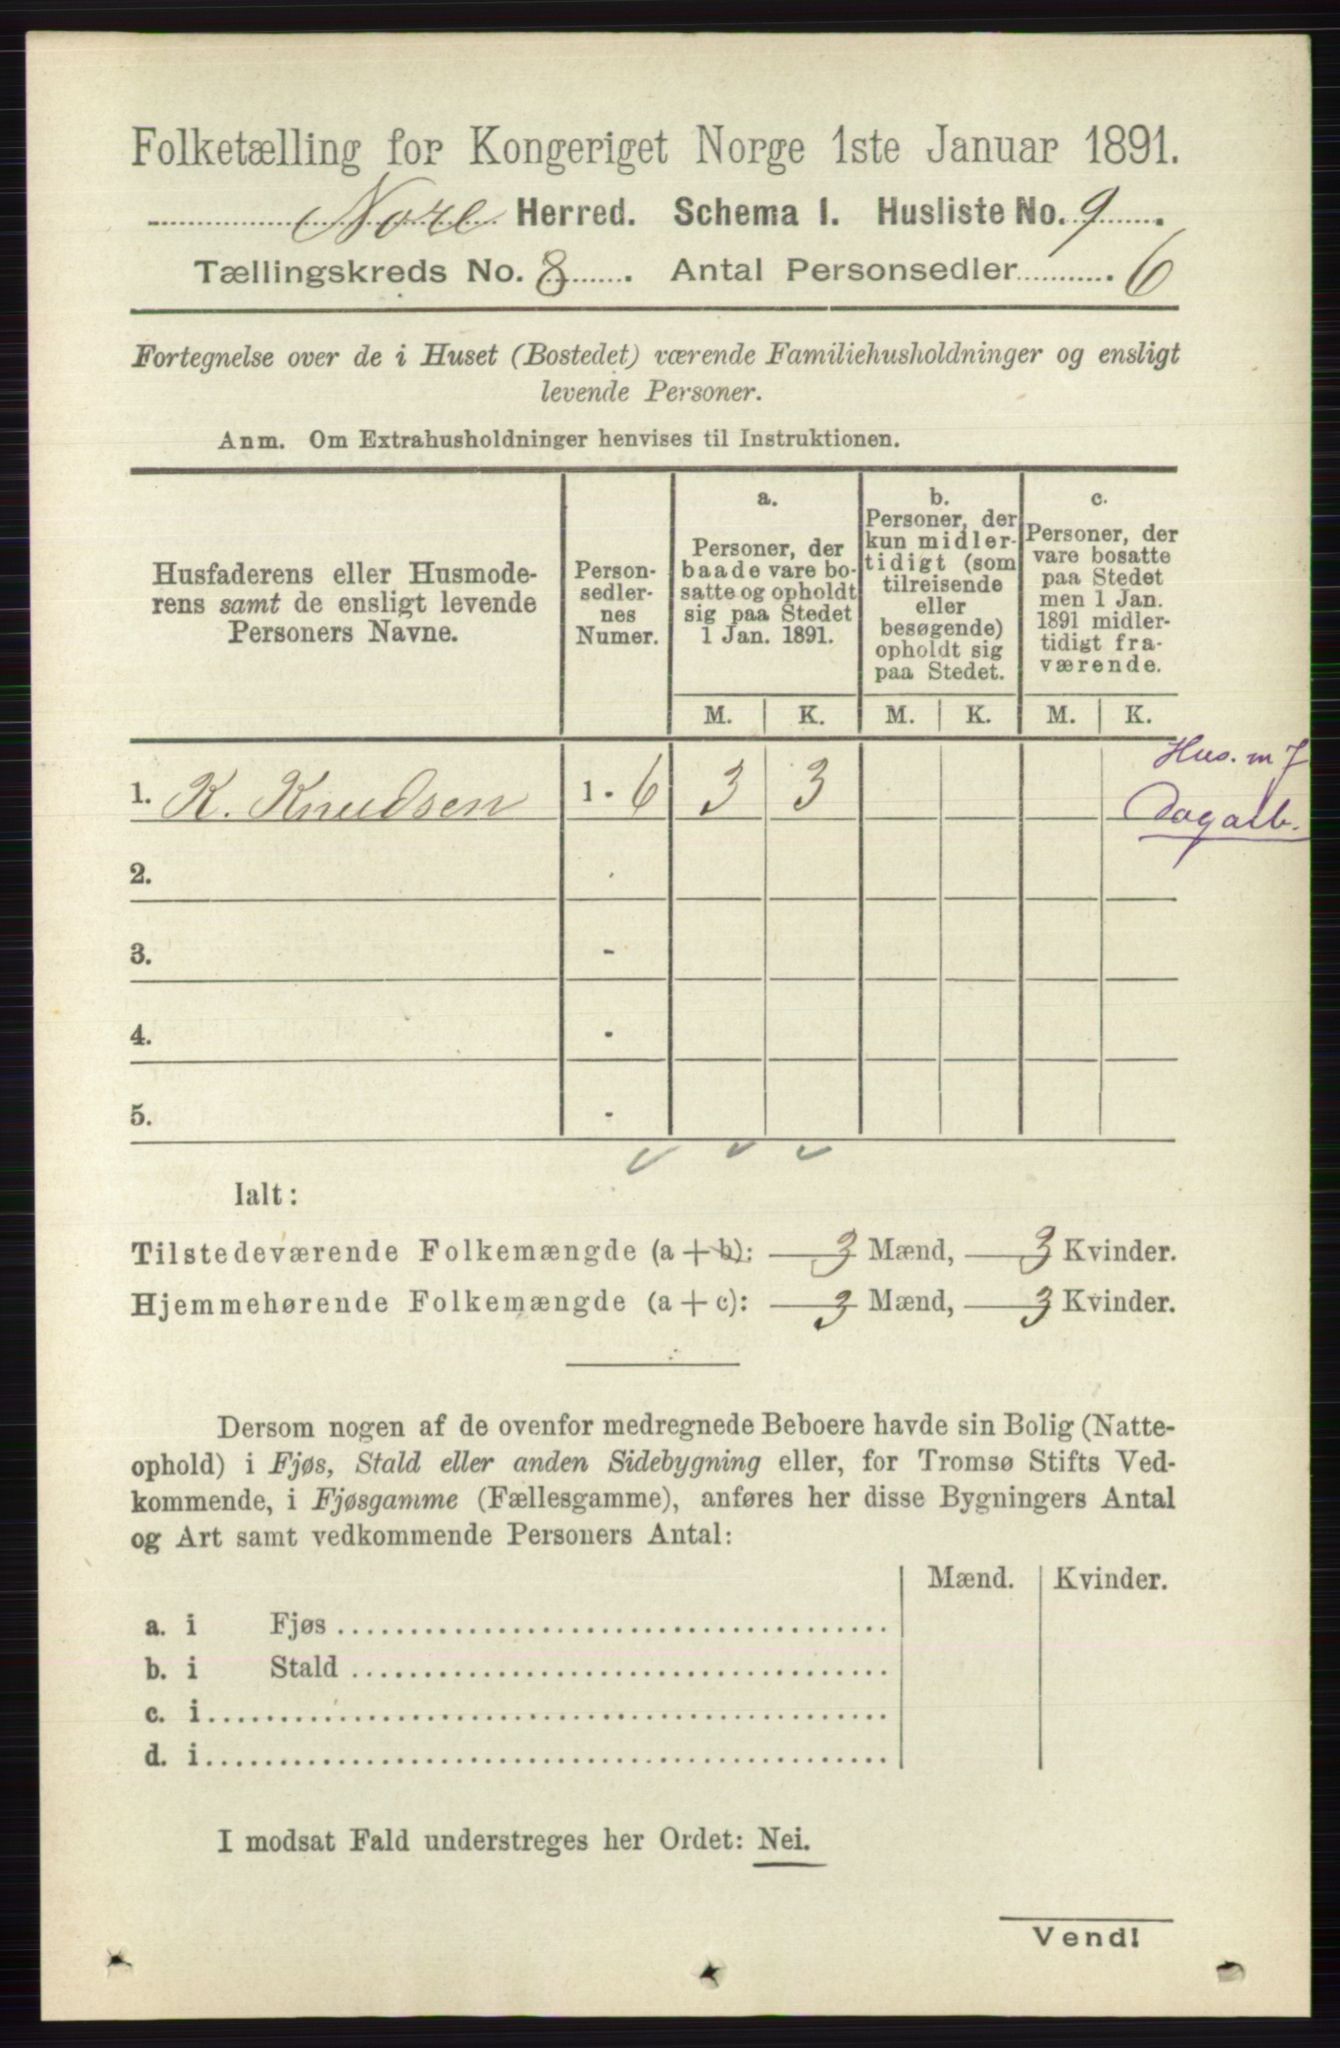 Folketælling for Kongeriget Norge 1ste Januar 1891.
Nore Herred. Schema 1. Husliste No. 9.
Tællingskreds No. 8. Antal Personsedler 6
Fortegnelse over de i Huset (Bostedet) værende Familiehusholdninger og ensligt
levende Personer.
Anm. Om Extrahusholdninger henvises til Instruktionen.
Husfaderens eller Husmode-
rens samt de ensligt levende
Personers Navne.
Person-
sedler-
nes
Numer.
a.
Personer, der
baade vare bo-
satte og opholdt
sig paa Stedet
1 Jan. 1891.
b.
Personer, der
kun midler-
tidigt (som
tilreisende
eller
besøgende)
opholdt sig
paa Stedet.
c.
Personer, der
vare bosatte
paa Stedet
men 1 Jan.
1891 midler-
tidigt fra-
værende.
M. K. M. K. M. K.
Hus. m J
1. K. Knudsen 1 - 6 3 3
Dagarb.
2. -
3. -
4. -
5. -
Ialt:
Tilstedeværende Folkemængde (a + b): 3 Mænd, 3 Kvinder.
Hjemmehørende Folkemængde (a + c): 3 Mænd, 3 Kvinder.
Dersom nogen af de ovenfor medregnede Beboere havde sin Bolig (Natte-
ophold) i Fjøs, Stald eller anden Sidebygning eller, for Tromsø Stifts Ved-
kommende, i Fjøsgamme (Fællesgamme), anføres her disse Bygningers Antal
og Art samt vedkommende Personers Antal:
Mænd. Kvinder.
a. i Fjøs
b. i Stald
c. i
d. i
I modsat Fald understreges her Ordet: Nei.
Vend!